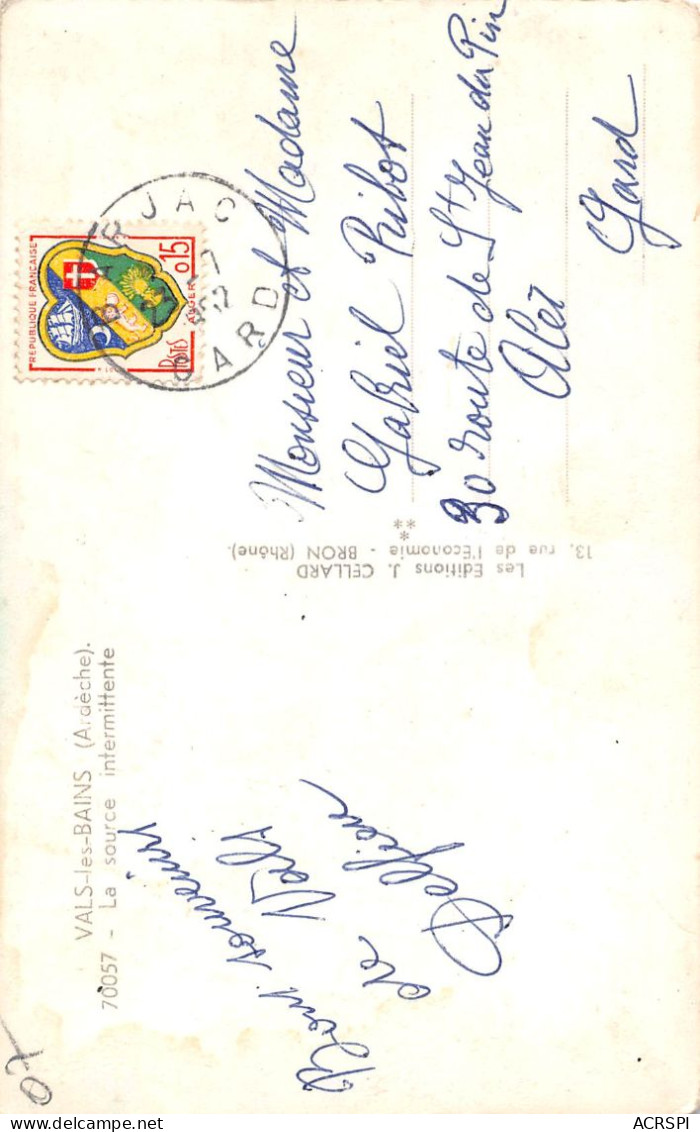 VALS-les-BAINS (Ardèche).
70057 - La source intermittente
Bons souvenirs
de Vals
Les Editions J. CELLARD
13, rue de l'Economie - BRON (Rhône).
REPUBLIQUE FRANÇAISE
0,15
ALGER
POSTES
JAC
GARD
Monsieur et Madame
Gabriel Ribot
30 route de St Jean du Pin
Alès
Gard
07
ACRSPI